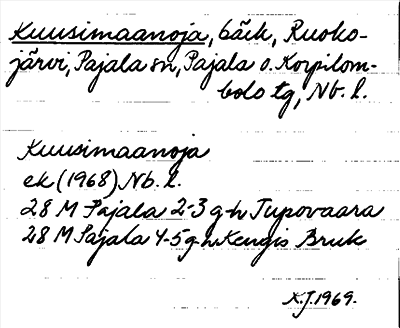 Kuusimaanoja, bäck, Ruoko-
järvi, Pajala sn, Pajala o. Korpilom-
bolo tg, Nb. l.
Kuusimaanoja
ek (1968) Nb. l.
28 M Pajala 2-3 g-h Tupovaara
28 M Pajala 4-5 g-h Kengis Bruk
K.J. 1969.